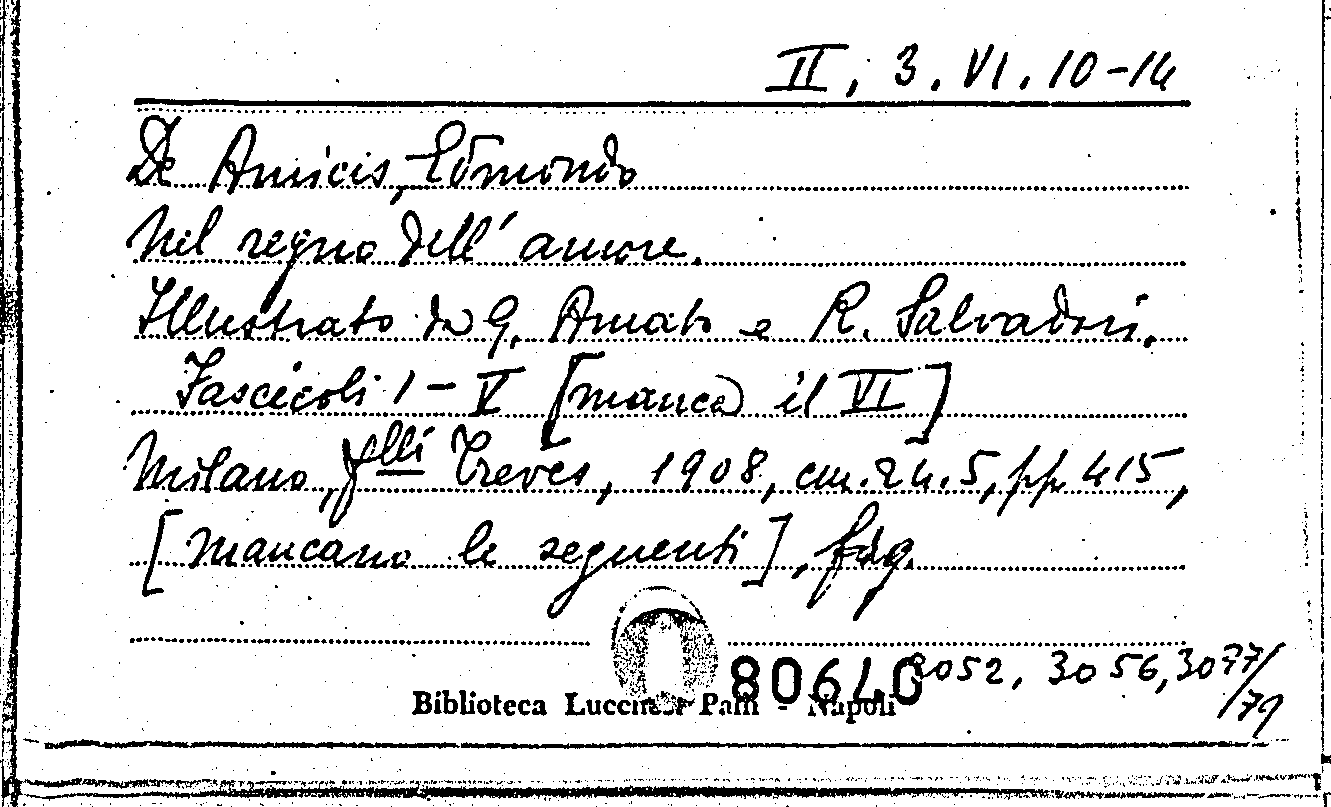 II, 3. VI. 10-14
De Amicis, Edmondo
Nel regno dell' amore.
Illustrato da G. Amato e R. Salvadori.
Fascicoli I - V [manca il VI]
Milano, f.lli Treves, 1908, cm. 24.5, pp. 415,
[mancano le seguenti], fig.
80640
3052, 3056, 3077/
/79
Biblioteca Lucchesi Palli - Napoli